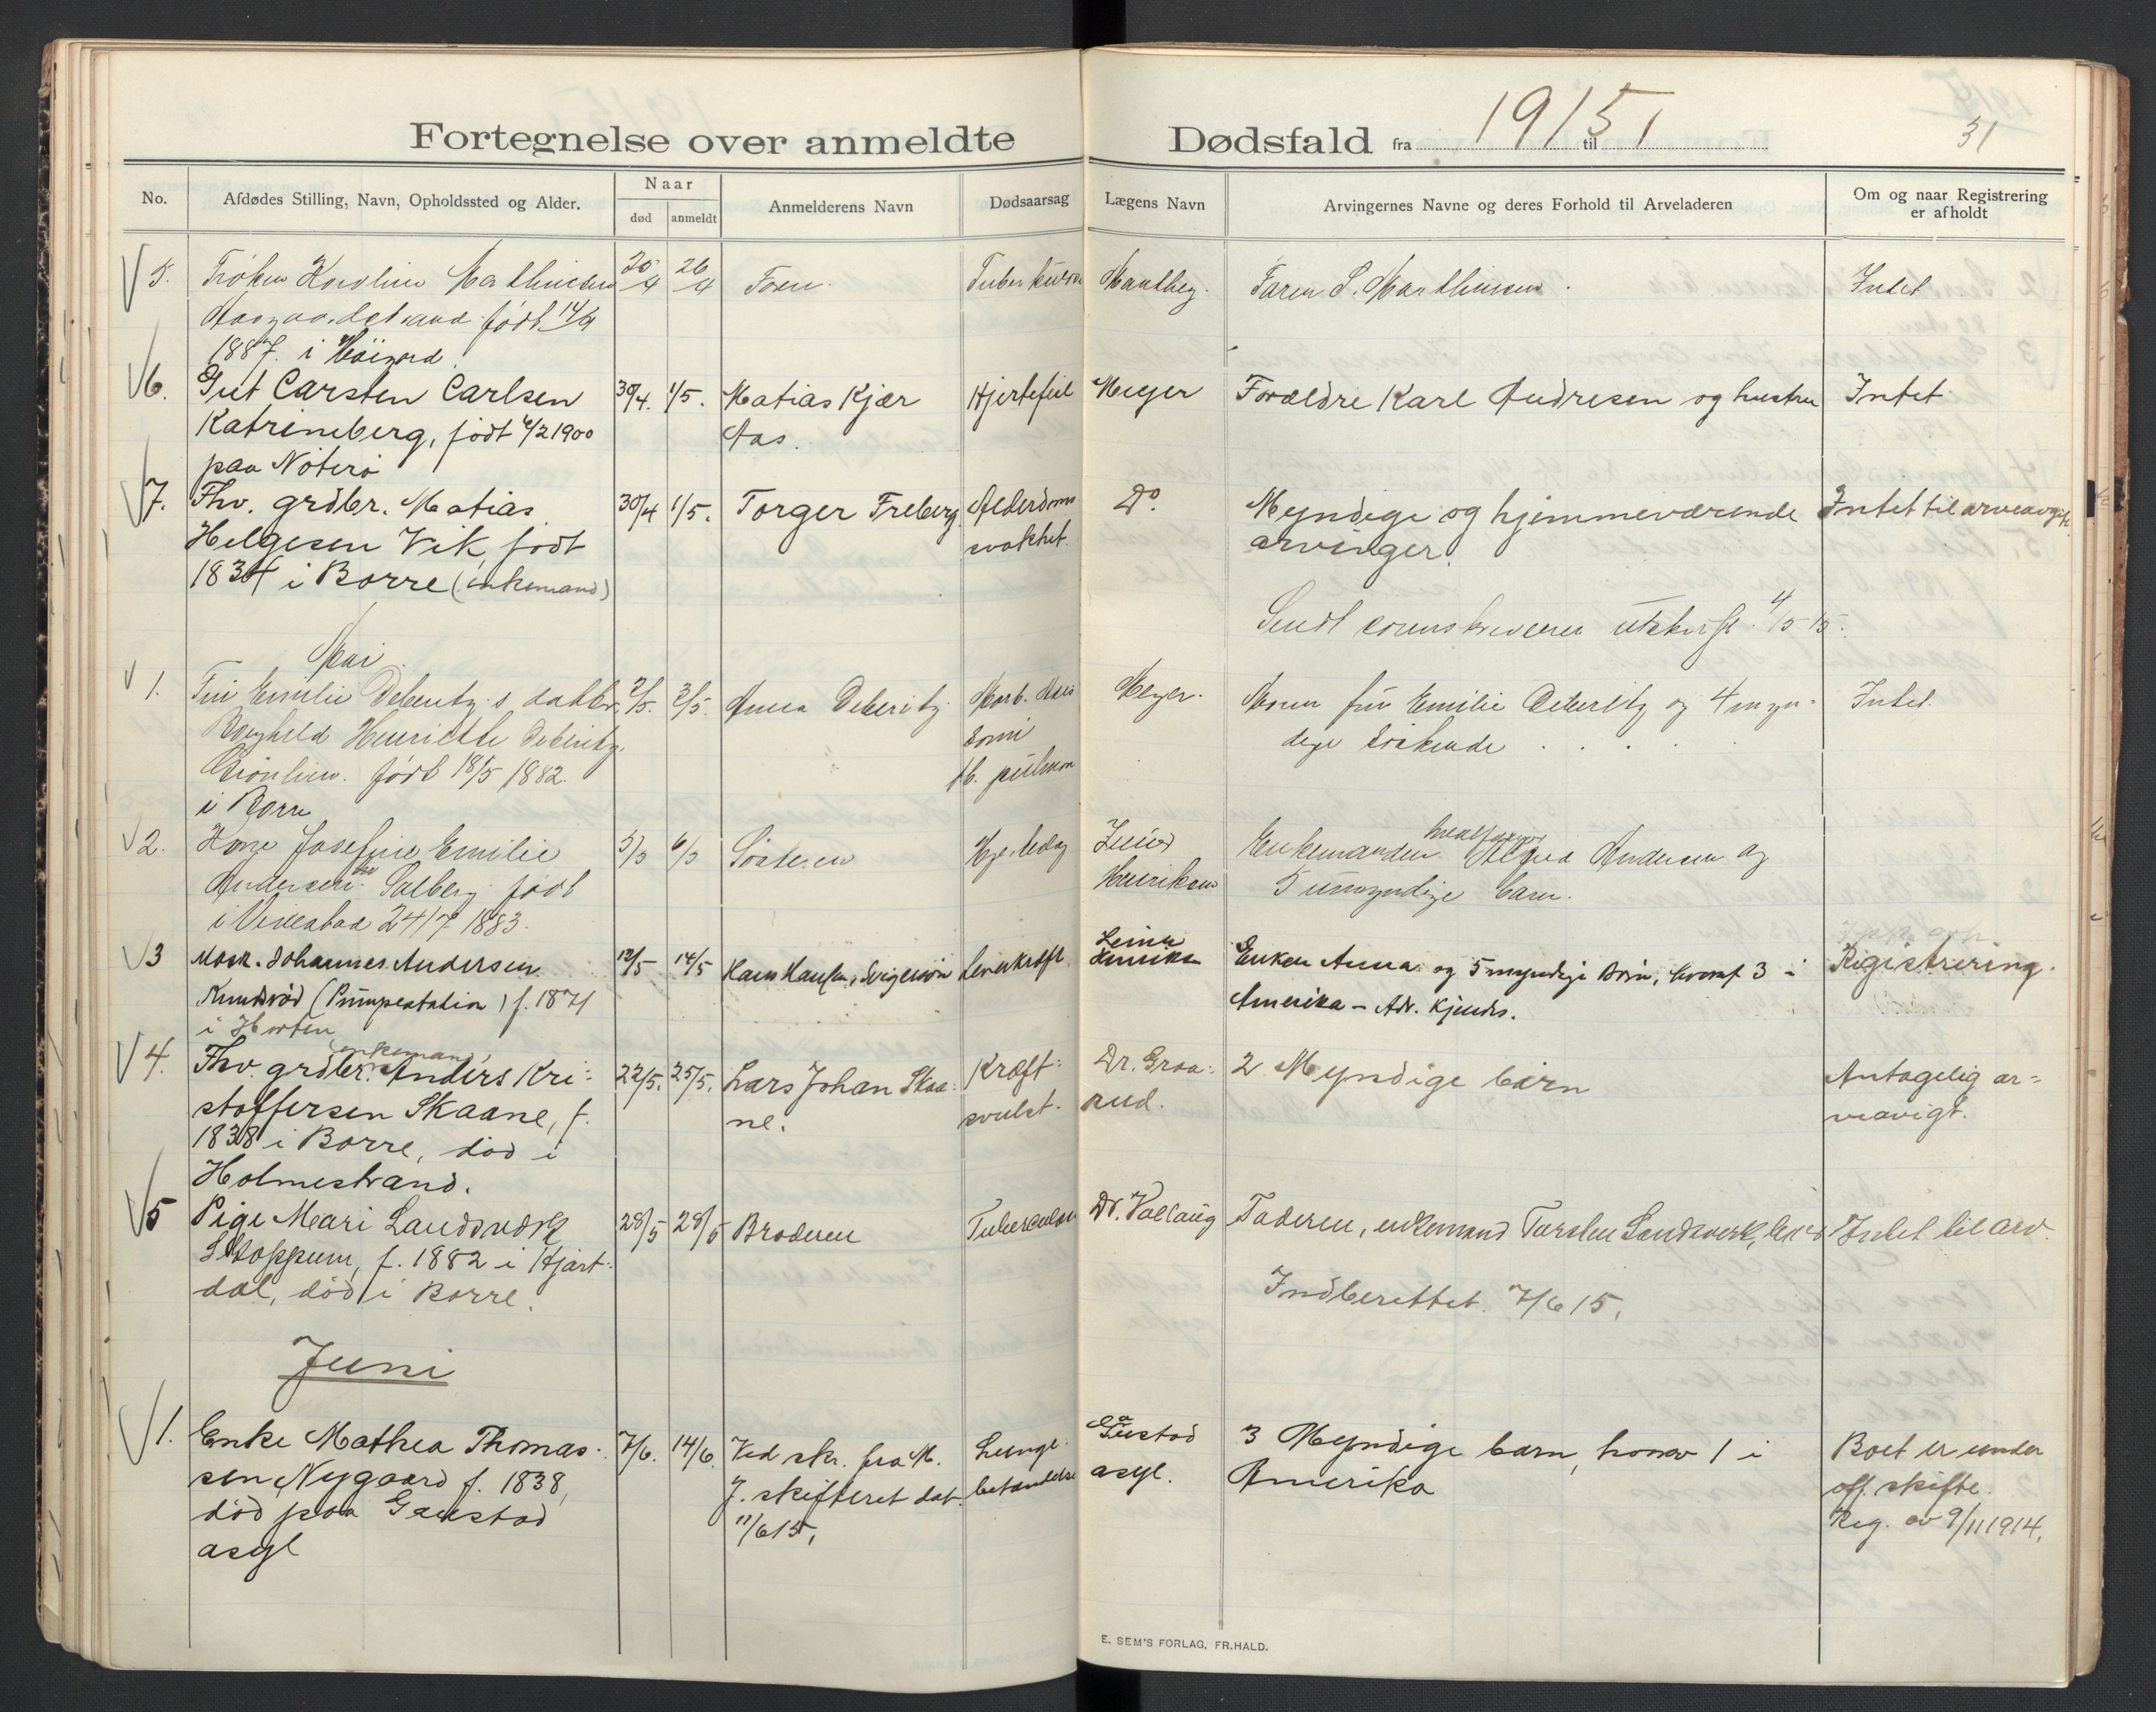 Fortegnelse over anmeldte Dødsfald fra 1915 til
31
No.
Afdødes Stilling, Navn, Opholdssted og Alder.
Naar
død
anmeldt
Anmelderens Navn
Dødsaarsag
Lægens Navn
Arvingernes Navne og deres Forhold til Arveladeren
Om og naar Registrering
er afholdt
5. Frøken Karoline Mathiesen 25/4 26/4 Faren. Tuberkulose Manthey. Faren S. Marthinsen. Intet
født 14/9
1887. i
6. Gut Carsten Carlsen 30/4. 1/5. Matias Kjær Hjertefeil Meyer Forældre Karl Andresen og hustru Intet
Katrineberg, født 4/2 1900 Aas.
paa Nøterø
7. Fhv. grdbr. Matias 30/4 1/5. Torger Freberg. Alderdoms Do. Myndige og hjemmeværende Intet til arveavgift
Helgesen Vik, født svakhet. arvinger.
1834 i Borre (enkemand)
Sendt utskrift 4/5 15.
Mai
1. Fru Emilie Deberitz's datter 2/5. 3/5. Anna Deberitz. Morb. Meyer. Moren fru Emilie Deberitz og 4 myn- Intet.
Borghild Henriette Deberitz. dige søskende
Grønlien. født 18/5 1882. tb. pulmon
i Borre
2. Kone Josefine Emilie 5/5 6/5 Søsteren Hjerteslag Enkemanden hvalfanger Alfred Andersen og
Andersen Solberg født Henriksen 5 umyndige barn.
i Vivestad 24/7 1883.
3 Mask. Johannes Andersen 12/5 14/5 Hans Hansen, Svigersøn Leverkræft Enken Anna og 5 myndige Børn, hvoraf 3 i Registrering.
Knudsrød (Pumpestation) f. 1871 Amerika - Adr. Kjendes.
i Horten
4. Fhv. grdbr. enkemand, Anders Kri- 22/5. 25/5. Lars Johan Skaa- Kræft- Dr. Graa- 2 Myndige børn Antagelig ar-
stoffersen Skaane, f. ne. svulst. rud. veavigt.
1838 i Borre, død i
Holmestrand.
5 Pige Mari Landsverk 28/5 28/5 Broderen Tuberculose Dr. Vallaug Faderen, enkemand Tarslen Landsverk, Intet til arv.
Stoppum, f. 1882 i Hjart-
dal, død i Borre. Indberettet 7/6 15.
Juni
1. Enke Mathea Thomas- 7/6. 14/6. Ved skr. fra M. Lunge- Gaustad 3 Myndige barn, hvorav 1 i Boet er under
sen Nygaard f. 1838, J. skifteret dat. betændelse asyl. Amerika off. skifte.
død paa Gaustad 11/6 15. Reg. av 9/11 1914.
asyl
E. SEM'S FORLAG, FR.HALD.